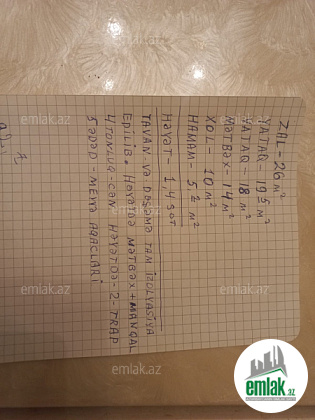 ZAL-26 m²
YATAQ-19,5 m²
YATAQ-18 m²
MƏTBƏX-14 m²
XOL-10 m²
HAMAM-5,2 m²
HƏYƏT-1,4 SOT
TAVAN VƏ DÖŞƏMƏ TAM İZOLYASİYA
EDİLİB. HƏYƏTDƏ MƏTBƏX+MANQAL
4 TONLUQ-ÇƏN HƏYƏTDƏ-2-TRAP
5 ƏDƏD-MEYVƏ AĞACLARI
emlak.az
emlak.az
emlak.az
emlak.az
emlak.az
emlak.az
emlak.az